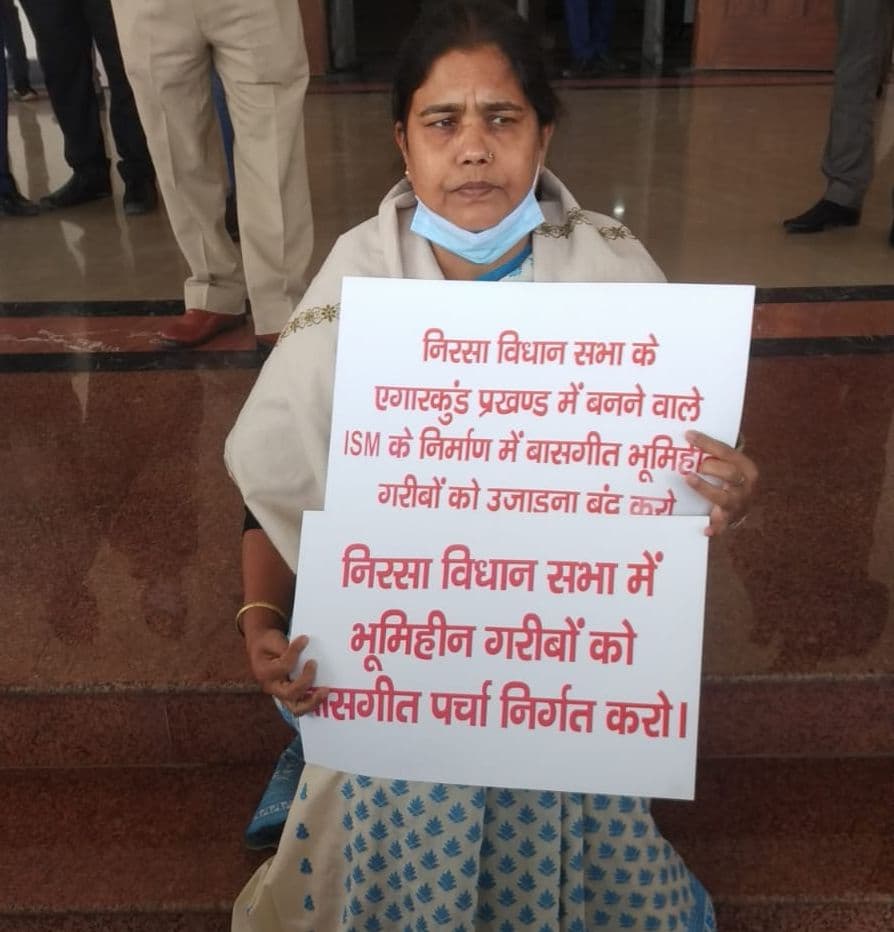 निरसा विधान सभा के
एगारकुंड प्रखण्ड में बनने वाले
ISM के निर्माण में बासगीत
गरीबों को उजाडना बंद करो
निरसा विधान सभा में
भूमिहीन गरीबों को
पर्चा निर्गत करो।